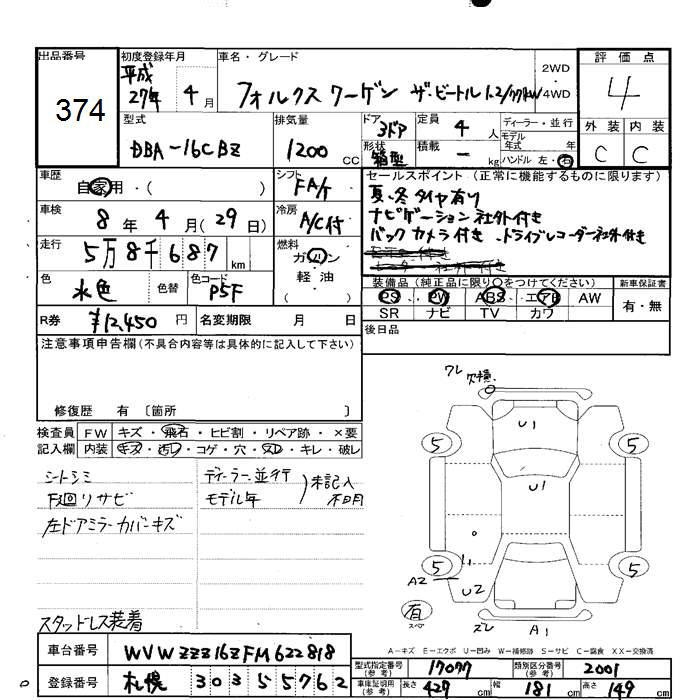 出品番号
374
初度登録年月
平成
27年 4月
車名・グレード
フォルクスワーゲン ザ・ビートル 1.2/77kW
2WD
4WD
評価点
4
外装 内装
C C
型式
DBA-16CBZ
排気量
1200 CC
ドア
3ドア
形状
箱型
定員 4 人
積載 - kg
ディーラー・並行
モデル
年式 年
ハンドル 左・右
車歴
自家用・( )
シフト
FA/T
車検
8年 4月(29日)
冷房
A/C付
走行
5万8千687 km
燃料
ガソリン
軽・油
色
水色
色替
色コード
P5F
R券 ¥12,450円
名変期限 月 日
セールスポイント(正常に機能するものに限ります)
夏、冬タイヤ有り
ナビゲーション社外付き
バックカメラ付き、ドライブレコーダー社外付き
装備品(純正品に限り○をつけてください)
PS PW ABS エアB AW
SR ナビ TV カワ
新車保証書
有・無
後日品
注意事項申告欄(不具合内容等は具体的に記入して下さい)
修復歴 有 〔箇所 〕
検査員
記入欄
FW キズ・飛石・ヒビ割・リペア跡・×要
内装 キズ・汚レ・コゲ・穴・スレ・キレ・破レ
シートシミ
下廻リサビ
左ドアミラーカバーキズ
スタッドレス装着
ディーラー、並行
モデル年
未記入
不明
ワレ
欠損
U1
U1
5
5
5
5
A2
U2
有
スペア
ズレ
A1
A-キズ E-エクボ U-凹み W-補修跡 S-サビ C-腐食 XX-交換済
車台番号
WVWZZZ16ZFM622818
登録番号
札幌 303 55762
型式指定番号
(参考)
17077
類別区分番号
(参考)
2001
車庫証明用
(参考)
長さ 427 cm
幅 181 cm
高さ 149 cm